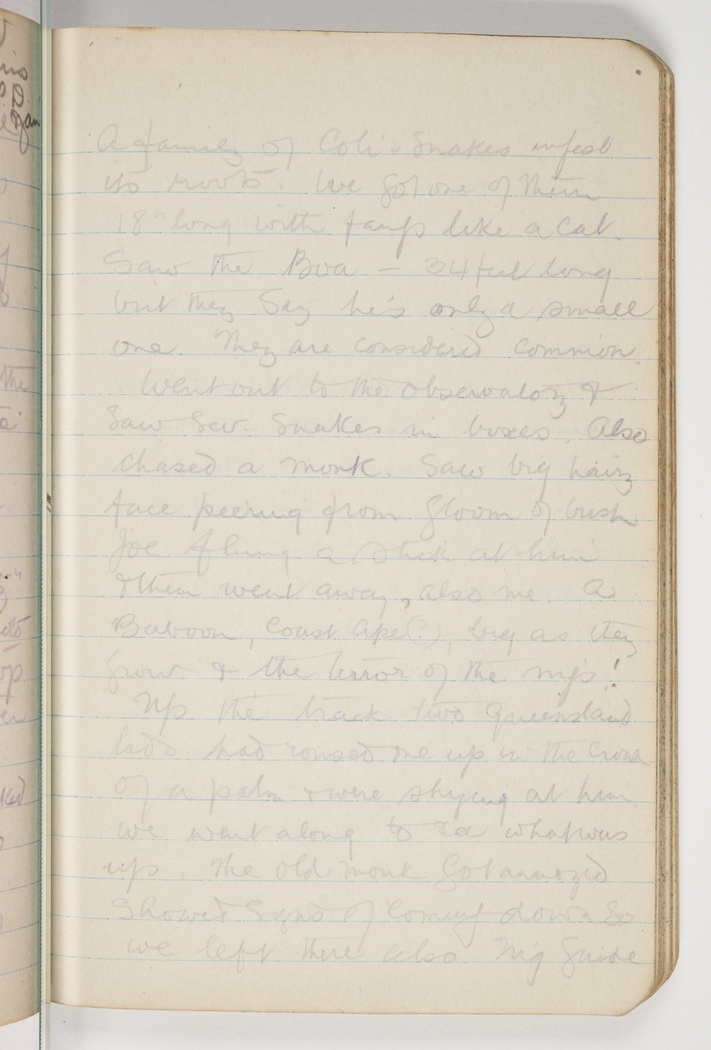 A family of Coli Snakes infest
its roots. We got one of them
18" long with fangs like a cat.
Saw the Boa - 34 feet long
but they say he's only a small
one. They are considered common.
Went out to the observatory &
Saw sev. snakes in boxes. Also
chased a monk. Saw big hairy
face peering from gloom of bush
Joe flung a stick at him
& then went away, also me. A
Baboon, coast ape (?), big as they
grow & the terror of the nigs!
Up the track two Queensland
lads had one up in the crown
of a palm & were shying at him
we went along to see what was
up. The old monk got annoyed
showed signs of coming down so
we left there also. Nig Guide